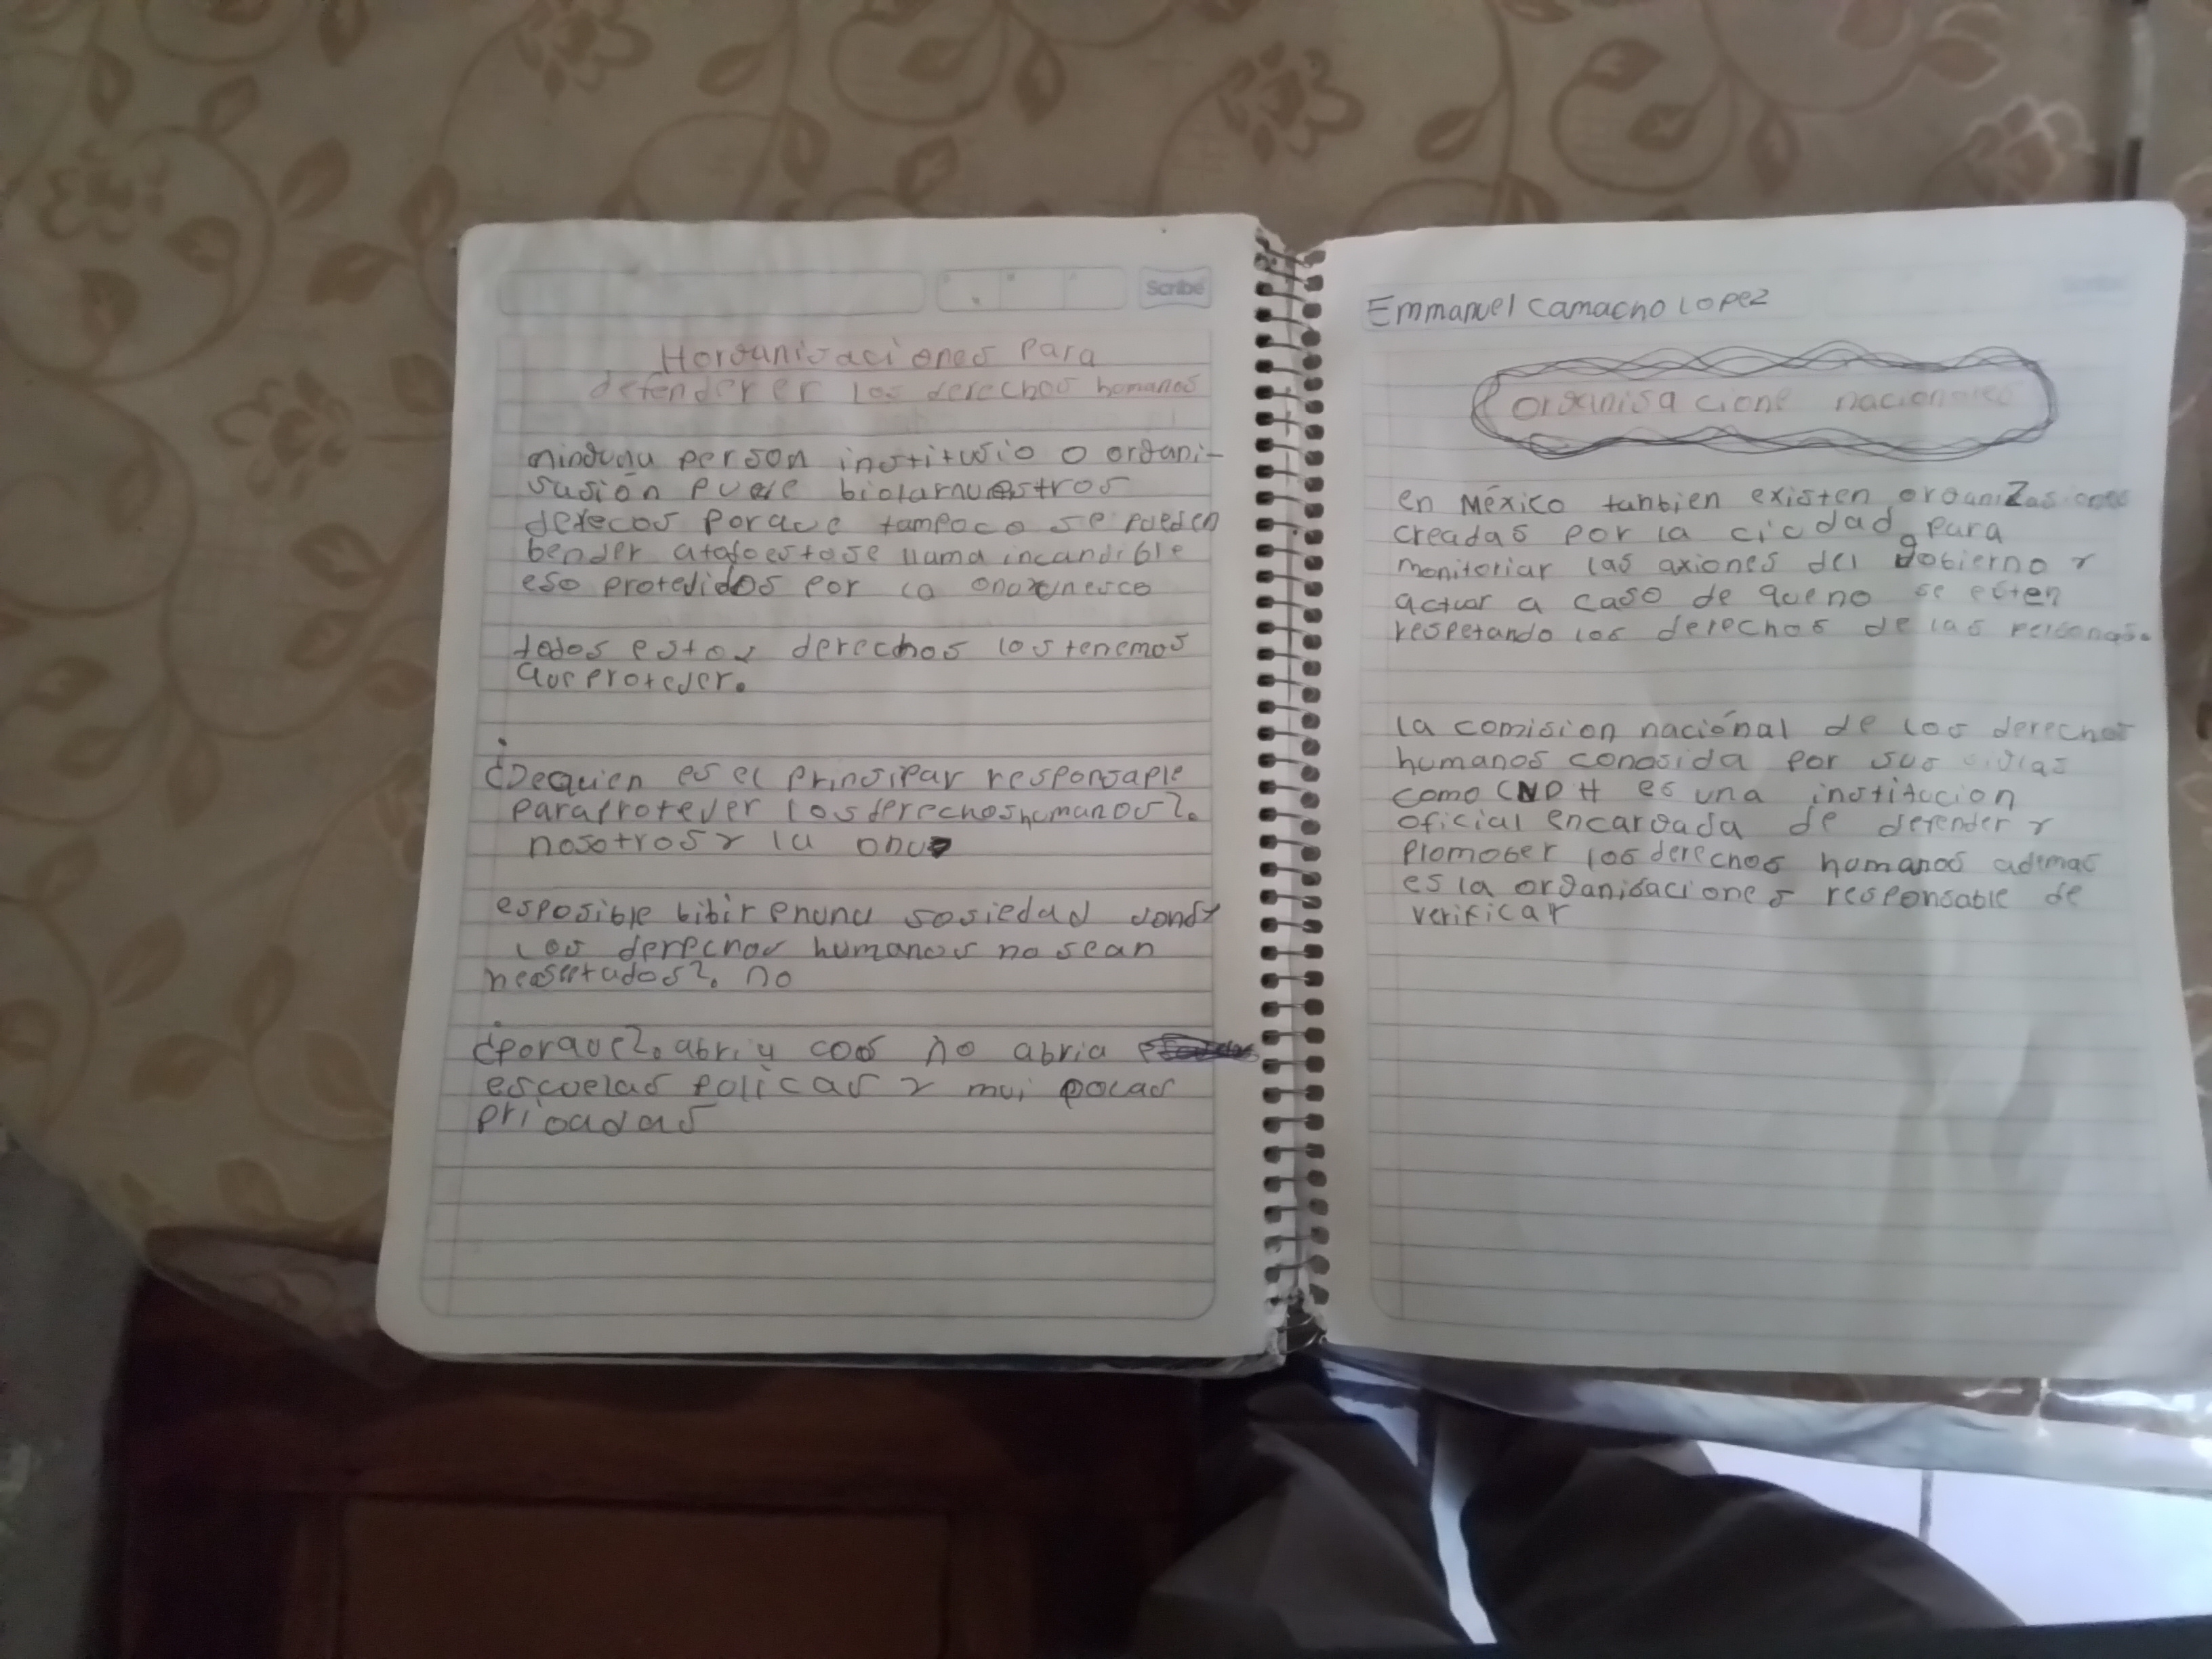 Scribe
Horganisaciones Para
defender er los derechos homanos
ninguna person institusio o organi-
sasión puede biolarnuestros
derecos porque tampoco se pueden
bender atodoestose llama incandible
eso protegidos por la
todos estos derechos los tenemos
que proteger.
¿Dequien es el prinsipar responsaple
paraproteger los derechos humanos?.
nosotros y la onu
esposible bibir enuna sosiedad donde
los derechos humanos no sean
no
¿porque?. abri y cos no abria
escuelas policas y mui pocas
prioadas
Emmanuel camacho Lopez
organisa cione nacionales
en México tanbien existen organizasiones
creadas por la ciudad para
monitoriar las axiones del gobierno y
actuar a caso de que no se esten
respetando los derechos de las personas.
la comision naciónal de los derechos
humanos conosida por sus siglas
como CNDH es una institucion
oficial encargada de defender y
Promober los derechos homanos ademas
es la organisaciones responsable de
verificar